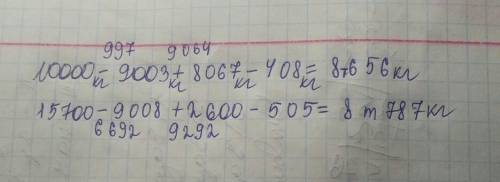 997 9064
10000 кг - 9003 кг + 8067 кг - 408 кг = 8т656кг
15700 - 9008 + 2600 - 505 = 8т 787кг
6692 9292